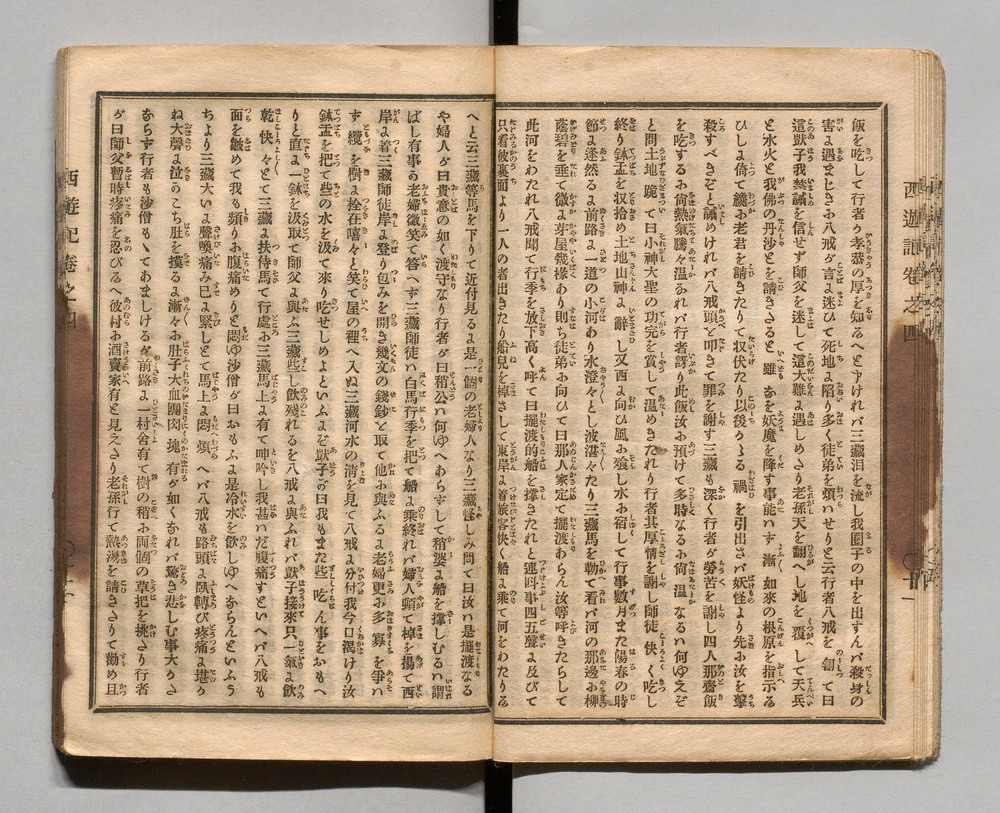 飯を吃して行者が孝恭の厚を知るへとすけれバ三藏泪を流し我圈子の中を出ずんバ殺身の
害よ遇まじきお八戒が言よ迷ひて死地よ陷り多く徒弟を煩ハせりと云行者八戒を罰して曰
這獃子我禁誡を信せず師父を迷して這大難よ遇しめさり老孫天を翻へし地を覆して天兵
と水火と我佛の丹沙とを請きさると雖も妖魔を降す事能ハす漸々如來の根原を指示る
ひしよ倚て纔お老君を請きたりて収伏たり以後かゝる禍を引出さバ妖怪より先お汝を擊
殺すべきぞと誡めけれバ八戒頭と叩きて罪を謝す三藏も深く行者が勞苦を謝し四人那齋飯
を吃するお尚熱氣騰々温あれバ行者訝り此飯汝お預けて多時なるお尚温なるハ何ゆえぞ
と問土地跪て曰小神大聖の功完を賞して温めきたれり行者其厚情を謝し師徒快く吃し
終り鉢盂を収拾め土地山神よ辭し又西よ向ひ風お飡し水お宿して行事數月また陽春の時
節よ逢然るよ前路よ一道の小河あり水澄々とし波湛々たり三藏馬を勒て看バ河の那邊お柳
蔭碧を垂て微よ茅屋幾椽あり則ち徒弟お向ひて曰那人家定て擺渡あらん汝等呼きたらして
此河をわたれ八戒聞て行李を放下高く呼て曰擺渡的船を撑きたれと連叫事四五聲よ及びて
只看彼裏面より一人の者出きたり船兒を棹さして東岸よ着旅客快く船よ乘て河をわたりる
へと云三藏等馬を下りて近付見るよ是一個の老婦人なり三藏怪しみ問て曰汝ハ是擺渡なる
や婦人が曰貴意の如く渡守なり行者が曰稍公ハ何ゆへあらずして稍婆よ船を撑しむるハ謂
ばし有事お老婦微笑て答へず三藏師徒ハ白馬行李を把て船よ乘終れバ婦人頓て棹を揚て西
岸よ着三藏師徒岸よ登り包みを開き幾文の錢鈔と取て他お與ふるよ老婦更お多寡を爭ハ
す纜を樹よ拴在嘻々と笑て屋の裡へ入ぬ三藏河水の淸を見て八戒よ分付我今口渇けり汝
鉢盂を把て些の水を汲て來り吃せしめよといふよぞ獃子お曰我もまた些吃ん事をおもへ
りと直よ一鉢を汲取て師父よ與ふ三藏些し飲殘れるを八戒よ與ふれバ獃子接來只一氣よ飲
乾快々とて三藏よ扶侍馬て行處お三藏馬上よ有て呻吟し我甚ハだ腹痛すといへバ八戒も
面を皺めて我も頻りお腹痛めりと悶ゆ沙僧が曰おもふよ是冷水を飲しゆへあらんといふう
ちより三藏大いよ聲喚痛み已よ緊しとて馬上よ悶煩へバ八戒も路頭よ臥轉び疼痛よ堪り
ね大聲よ泣のこち肚を摸るよ漸々お肚子大血團肉塊有が如くなれバ驚き悲しむ事大かさ
あらす行者も沙僧もいてあましけるが前路よ一村舎有て樹の稍お兩個の草把を挑さり行者
が曰師父暫時疼痛を忍びるへ彼村お酒賣家有と見えさり老孫行て熱湯を請きさりて勸め且
西遊記卷之四
西遊記卷之四